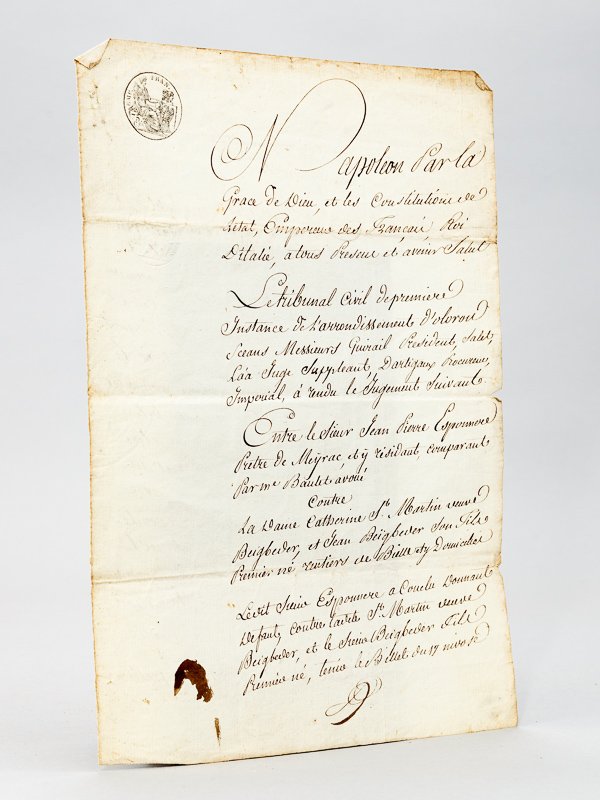 Napoleon Par la
Grace de Dieu, et les Constitutions de
letat, Empereur des Français Roi
Ditalie, a tous Present et avenir Salut
Le tribunal Civil de premiere
Instance de L'arrondissement d'oloron
Sceans Messieurs Guirail President, Salut,
Láa Juge Suppleant, Dartigaux Procureur
Imperial, à rendu le Jugement Suivant
Entre le Sieur Jean Pierre Esponnere
Prêtre de Meyrac, et y résidant, comparant
Par me Bautet avoué
Contre
La Dame Catherine St. Martin veuve
Beigbeder, et Jean Beigbeder Son Fils
Premier né, rentiers de Bielle et y Domiciliés
Ledit Sieur Esponnere a Conclu Donnant
Defaut, Contre ladite St. Martin veuve
Beigbeder, et le Sieur Beigbeder Fils
Premier né, tenir le Billet du 17 nivose